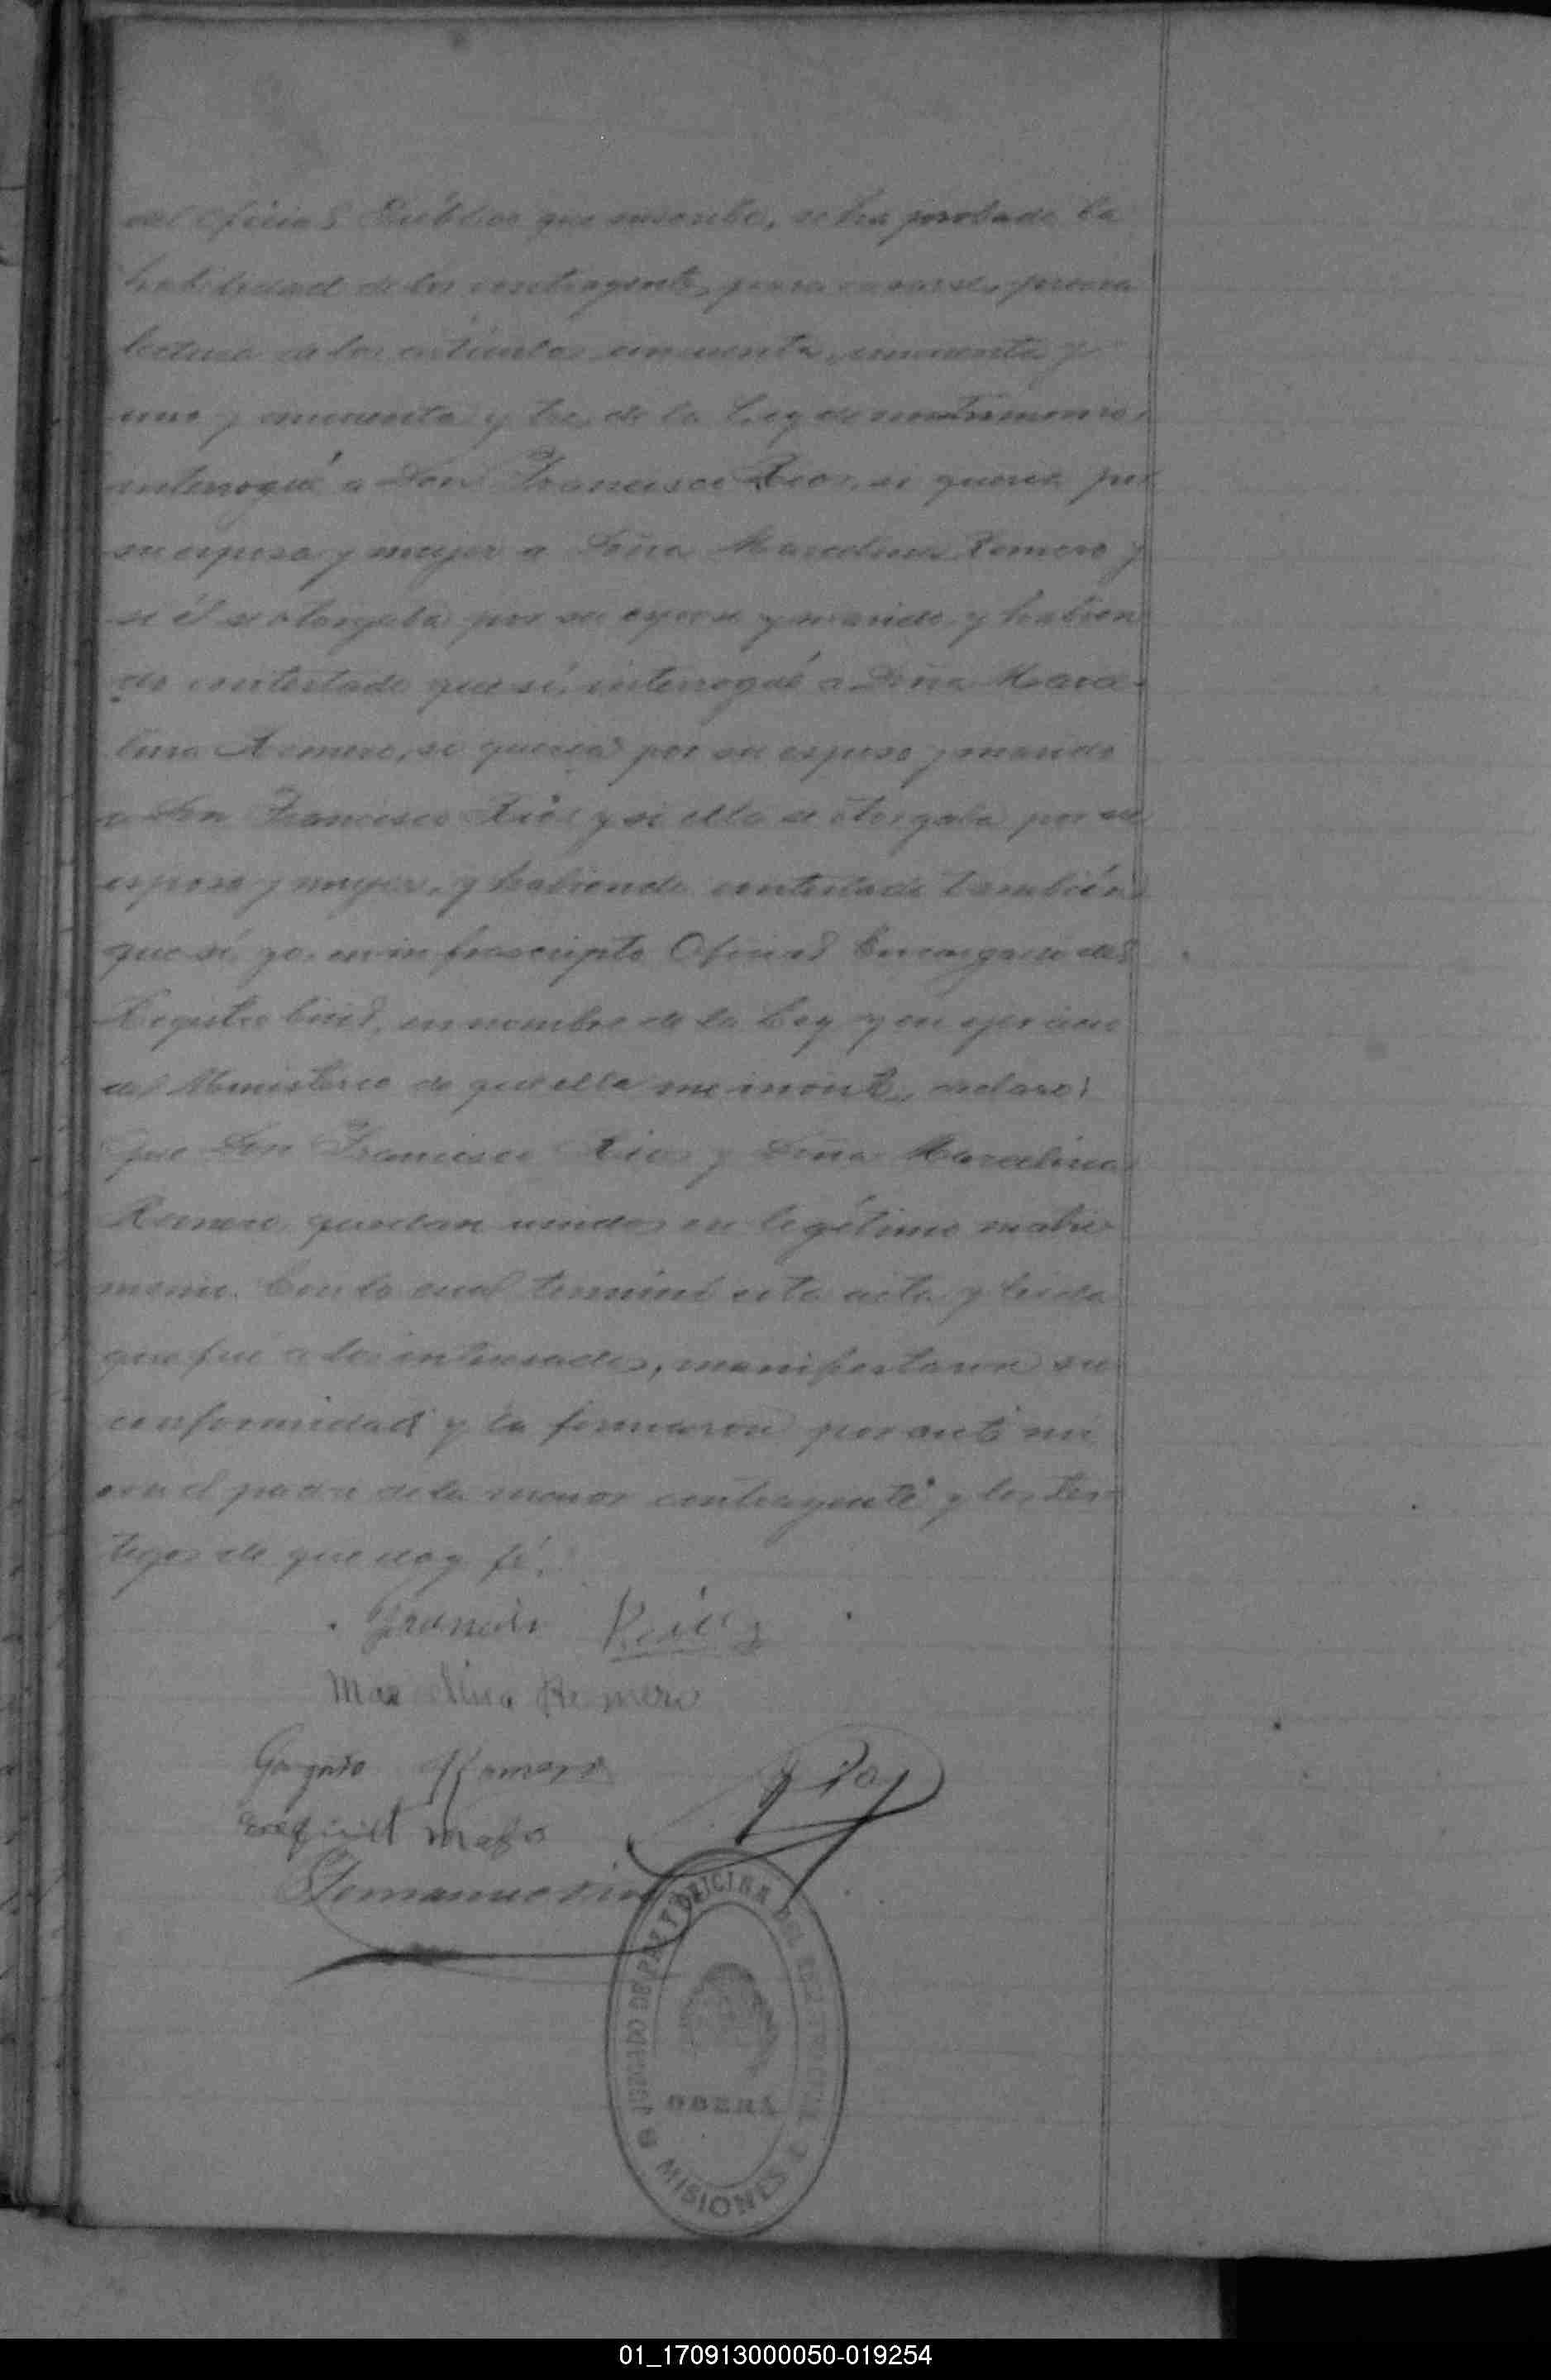 del Oficial Público que suscribe, se ha probado la
habilidad de los contrayentes para casarse, previa
lectura de los artículos cincuenta, cincuenta y
uno y cincuenta y tres de la Ley de matrimonio,
interrogué a Don Francisco Rios, si quería por
su esposa y mujer a Doña Marcelina Romero y
si él se otorgaba por su esposo y marido, y habien
do contestado que sí, interrogué a Doña Marce-
lina Romero, si quería por su esposo y marido
a Don Francisco Rios y si ella se otorgaba por su
esposa y mujer, y habiendo contestado también
que sí, yo, el infrascripto Oficial Encargado del
Registro Civil, en nombre de la Ley y en ejercicio
del Ministerio de que ella me inviste, declaro:
Que Don Francisco Rios y Doña Marcelina
Romero quedan unidos en legítimo matri-
monio. Con lo cual terminó esta acta y leida
que fué a los interesados, manifestaron su
conformidad y la firmaron por ante mí
con el padre de la menor contrayente y los tes-
tigos de que doy fé.
Rios
Marcelina Romero
Romero
OFICINA DEL REGISTRO CIVIL
OBERÁ
MISIONES
01_170913000050-019254